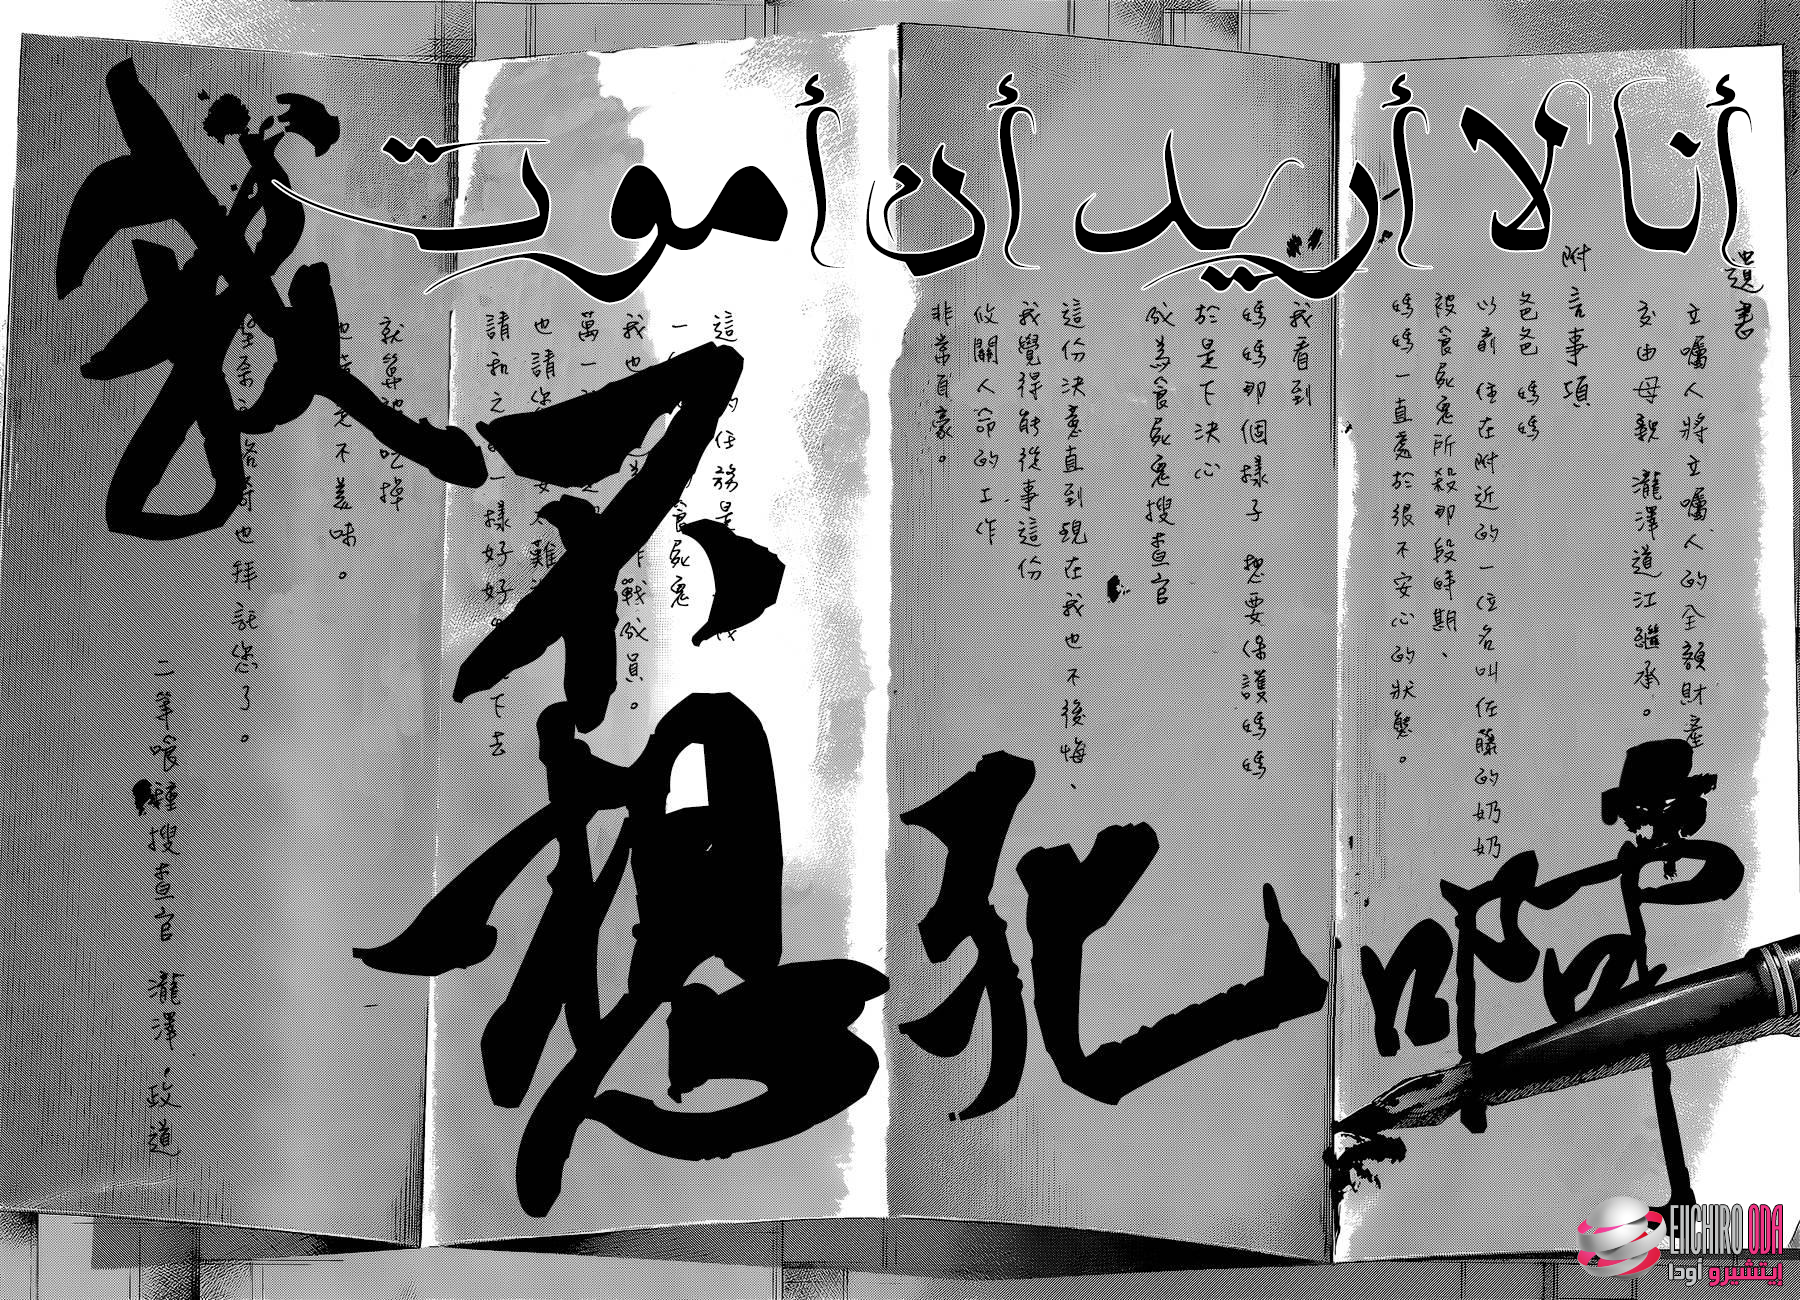 أنا لا أريد أن أموت
遺書
立囑人將立囑人的全額財產
交由母親 瀧澤道江繼承。
附言事項
爸爸 媽媽
以前住在附近的一位名叫佐藤的奶奶
被食屍鬼所殺那段時期、
媽媽一直處於很不安心的狀態。
我看到
媽媽那個樣子 想要保護媽媽
於是下決心
成為食屍鬼搜查官
這份決意直到現在我也不後悔、
我覺得能從事這份
攸關人命的工作
非常自豪。
這 的任務是
食屍鬼
我也 作戰成員。
萬一
也請 難
請和之 一樣好好 下去
就算被吃掉
也 不美味。
也拜託您了。
二等喰種搜查官 瀧澤政道
我不想死啊
EIICHIRO ODA
إيتشيرو أودا